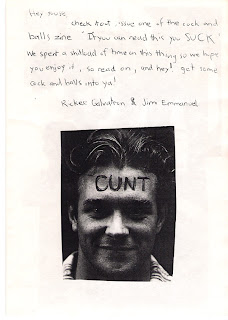 Hey you's
check it out. issue one of the cock and
balls zine 'If you can read this you SUCK'
We spent a shitload of time on this thing so we hope
you enjoy it, so read on, and hey! get some
cock and balls into ya!
Ricker Galvatron & Jimi Emmanuel
CUNT